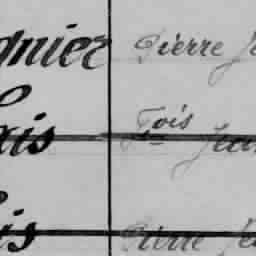 gnier Pierre Je
ais Fois Jean
is Pierre Jea